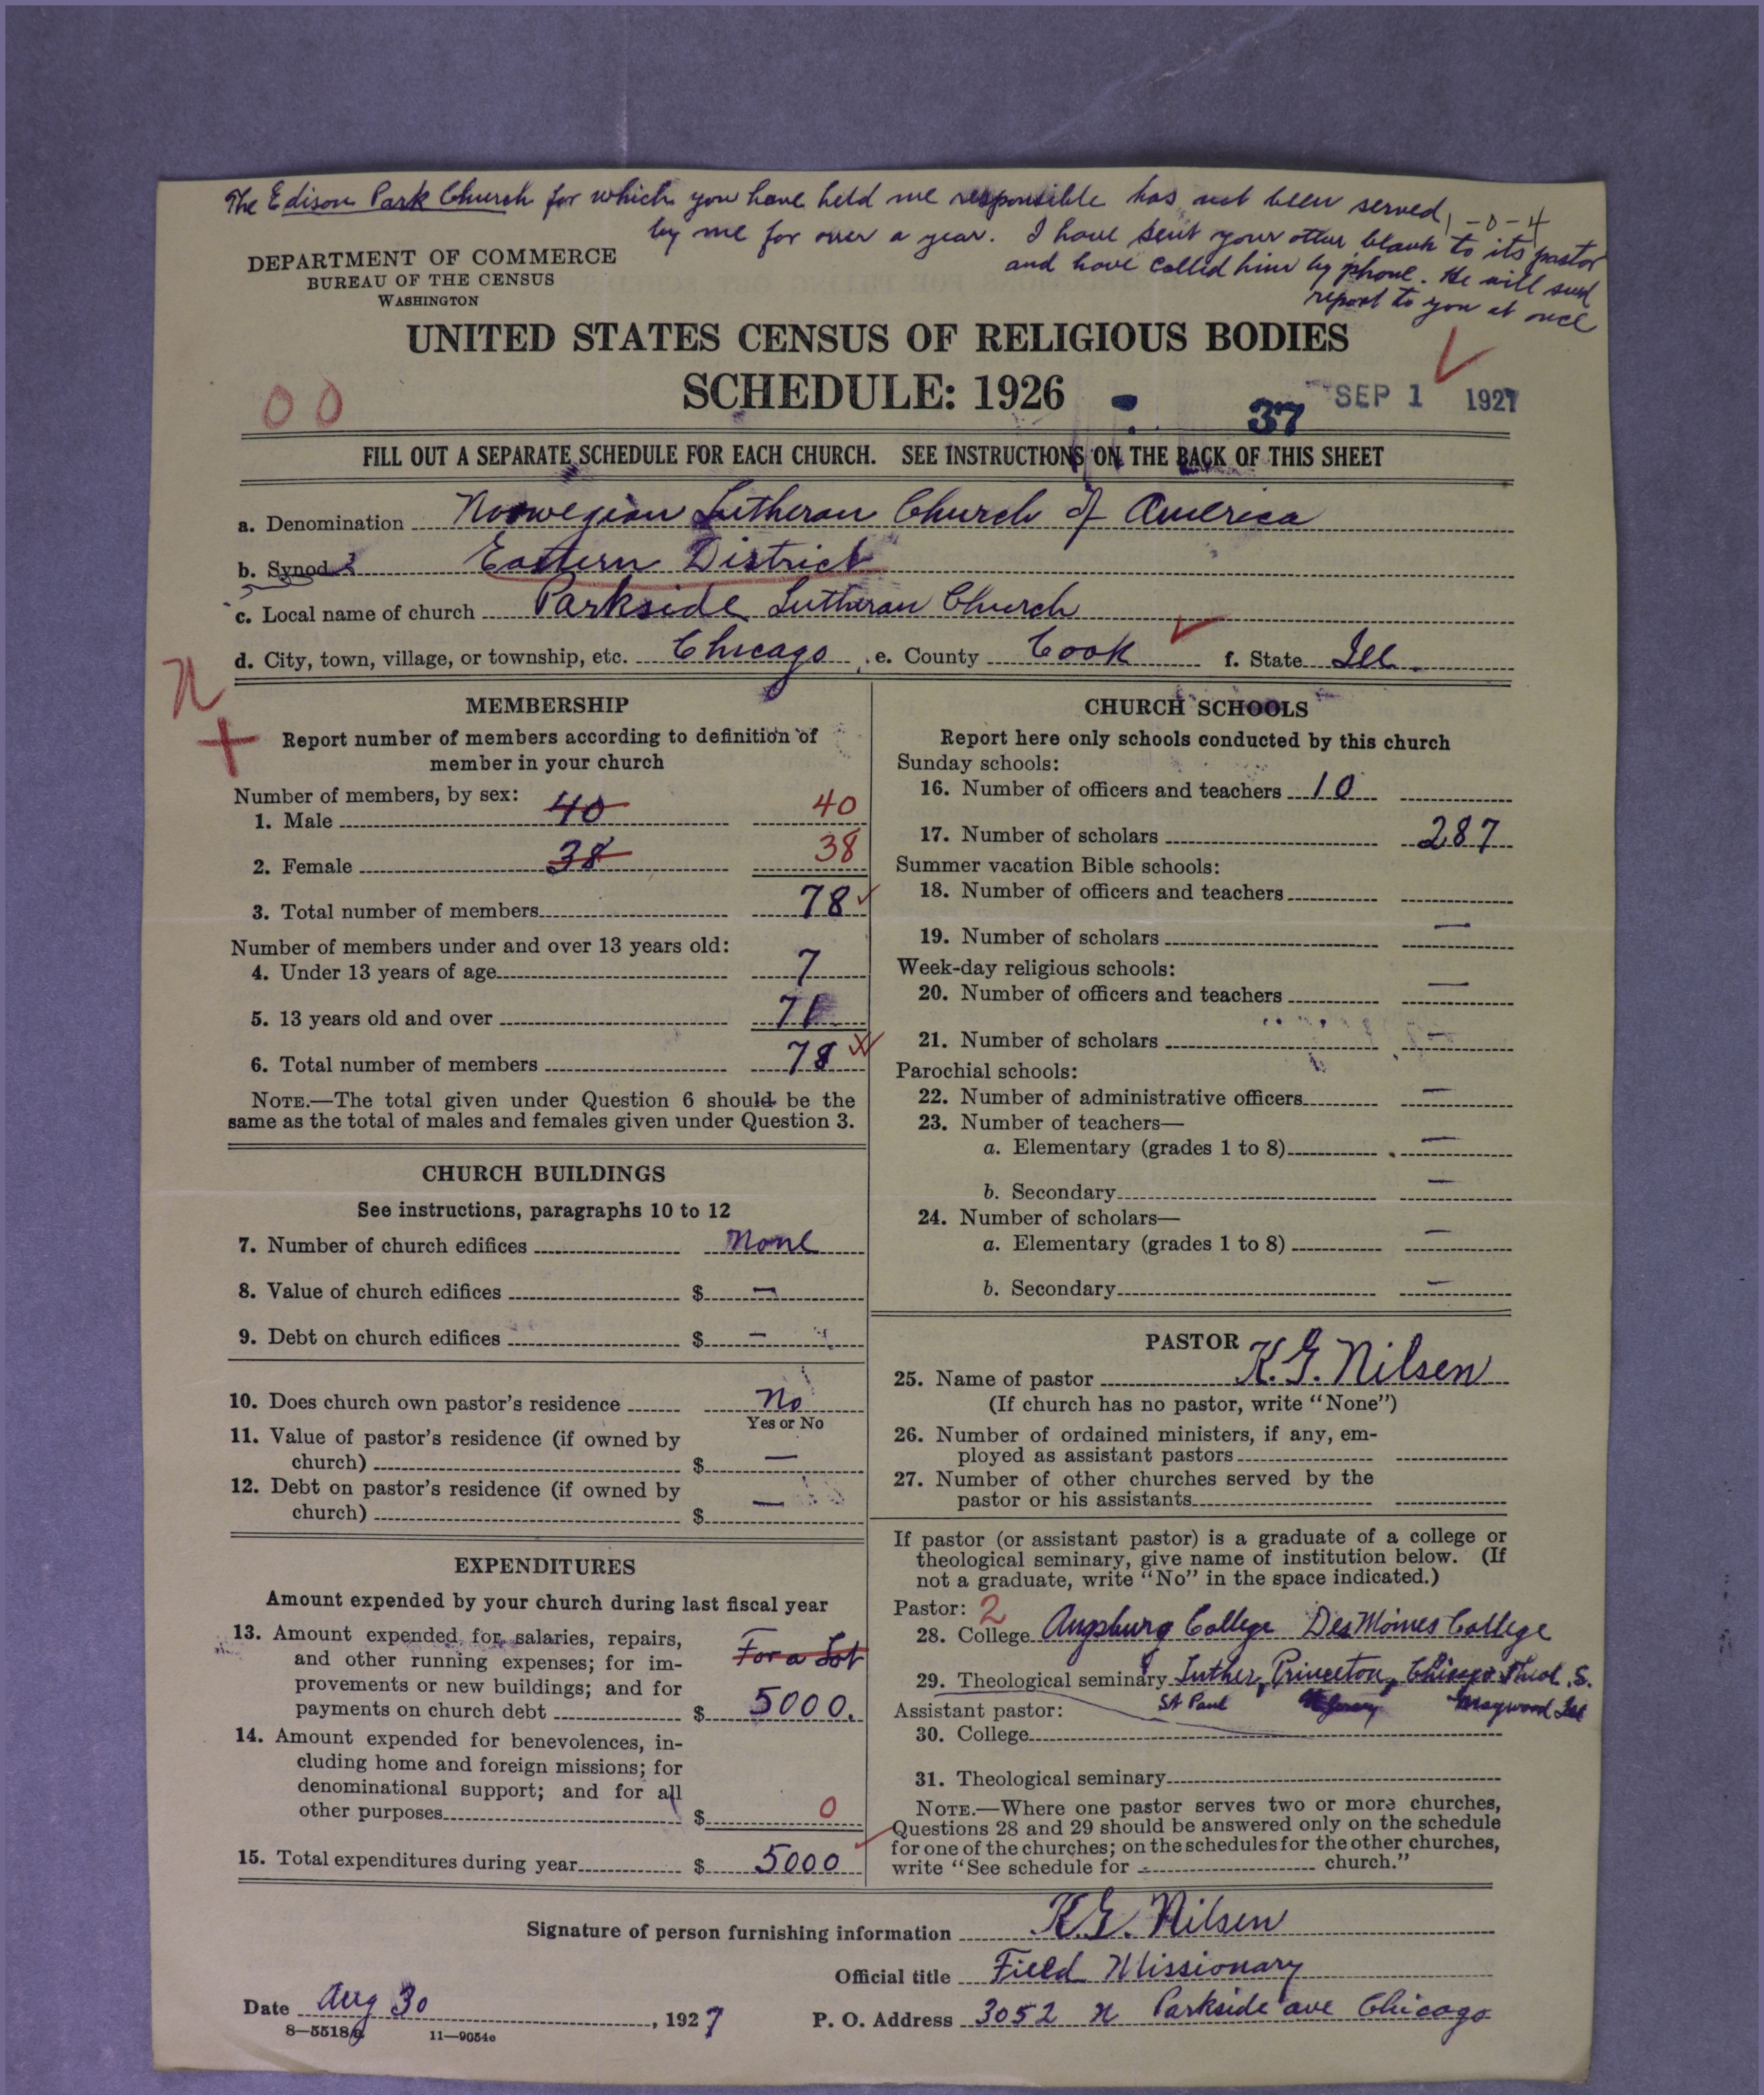 The Edison Park Church for which you have held me responsible has not been served
1-0-4
by me for over a year. I have sent your other blank to its pastor
and have called him by phone. He will send
report to you at once
DEPARTMENT OF COMMERCE
BUREAU OF THE CENSUS
WASHINGTON
UNITED STATES CENSUS OF RELIGIOUS BODIES
SCHEDULE: 1926
00
37
SEP 1 1927
FILL OUT A SEPARATE SCHEDULE FOR EACH CHURCH. SEE INSTRUCTIONS ON THE BACK OF THIS SHEET
a. Denomination Norwegian Lutheran Church of America
b. Synod Eastern District
c. Local name of church Parkside Lutheran Church
d. City, town, village, or township, etc. Chicago e. County Cook f. State Ill.
MEMBERSHIP
Report number of members according to definition of
member in your church
Number of members, by sex:
1. Male 40 40
2. Female 38 38
3. Total number of members 78
Number of members under and over 13 years old:
4. Under 13 years of age 7
5. 13 years old and over 71
6. Total number of members 78
NOTE.—The total given under Question 6 should be the
same as the total of males and females given under Question 3.
CHURCH BUILDINGS
See instructions, paragraphs 10 to 12
7. Number of church edifices None
8. Value of church edifices $ —
9. Debt on church edifices $ —
10. Does church own pastor's residence No
Yes or No
11. Value of pastor's residence (if owned by
church) $ —
12. Debt on pastor's residence (if owned by
church) $ —
EXPENDITURES
Amount expended by your church during last fiscal year
13. Amount expended for salaries, repairs,
and other running expenses; for im-
provements or new buildings; and for
payments on church debt $ 5000.
For a Lot
14. Amount expended for benevolences, in-
cluding home and foreign missions; for
denominational support; and for all
other purposes $ 0
15. Total expenditures during year $ 5000
CHURCH SCHOOLS
Report here only schools conducted by this church
Sunday schools:
16. Number of officers and teachers 10
17. Number of scholars 287
Summer vacation Bible schools:
18. Number of officers and teachers
19. Number of scholars —
Week-day religious schools:
20. Number of officers and teachers —
21. Number of scholars —
Parochial schools:
22. Number of administrative officers —
23. Number of teachers—
a. Elementary (grades 1 to 8) —
b. Secondary —
24. Number of scholars—
a. Elementary (grades 1 to 8) —
b. Secondary —
PASTOR
25. Name of pastor K. G. Nilsen
(If church has no pastor, write "None")
26. Number of ordained ministers, if any, em-
ployed as assistant pastors
27. Number of other churches served by the
pastor or his assistants
If pastor (or assistant pastor) is a graduate of a college or
theological seminary, give name of institution below. (If
not a graduate, write "No" in the space indicated.)
Pastor: 2
28. College Augsburg College Des Moines College
29. Theological seminary Luther, Princeton, Chicago Theol. S.
St Paul Maywood Ill
Assistant pastor:
30. College
31. Theological seminary
NOTE.—Where one pastor serves two or more churches,
Questions 28 and 29 should be answered only on the schedule
for one of the churches; on the schedules for the other churches,
write "See schedule for church."
Signature of person furnishing information K. G. Nilsen
Official title Field Missionary
Date Aug 30, 1927
P. O. Address 3052 N Parkside ave Chicago
8—5518
11—9054e